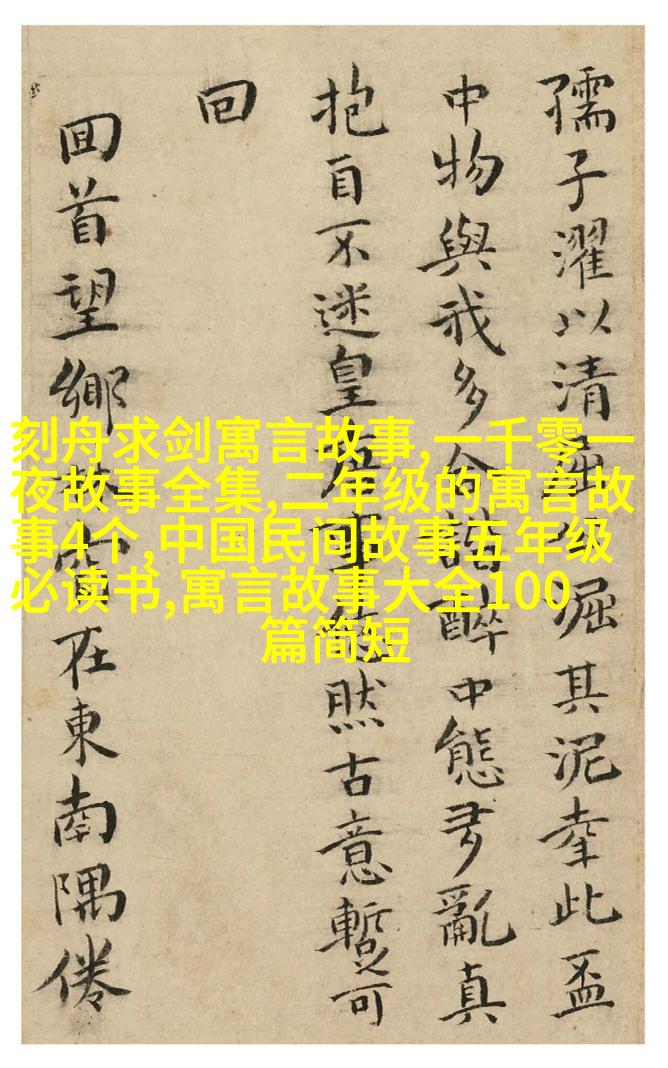 刻舟求剑寓言故事,一千零一
夜故事全集,二年级的寓言故
事4个,中国民间故事五年级
必读书,寓言故事大全100
篇简短
孺子濯以清其泥幸此盃
中物與我多合諧醉中態多亂真
抱自不迷皇然古意暫可
回
回首望鄉在東南隅倦